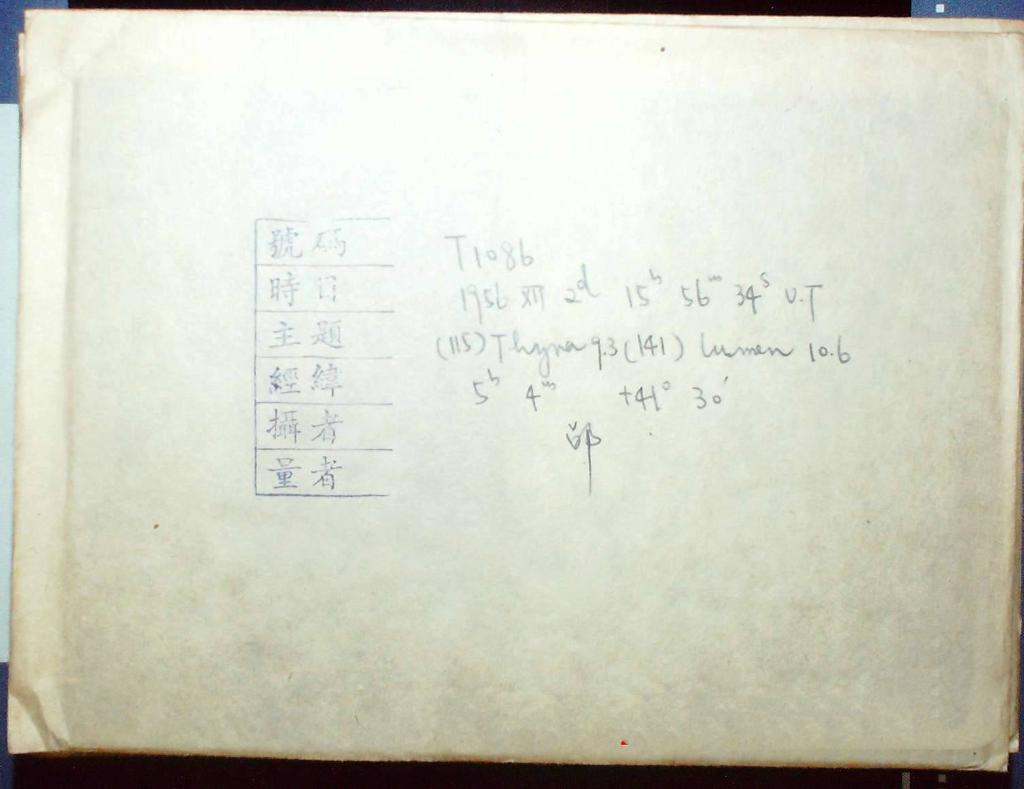 號碼 T1086
時日 1956 XII 2d 15h 56m 34s U.T
主題 (115) Thyra 9.3 (141) Lumen 10.6
經緯 5h 4m +41° 30'
攝者 邵
量者